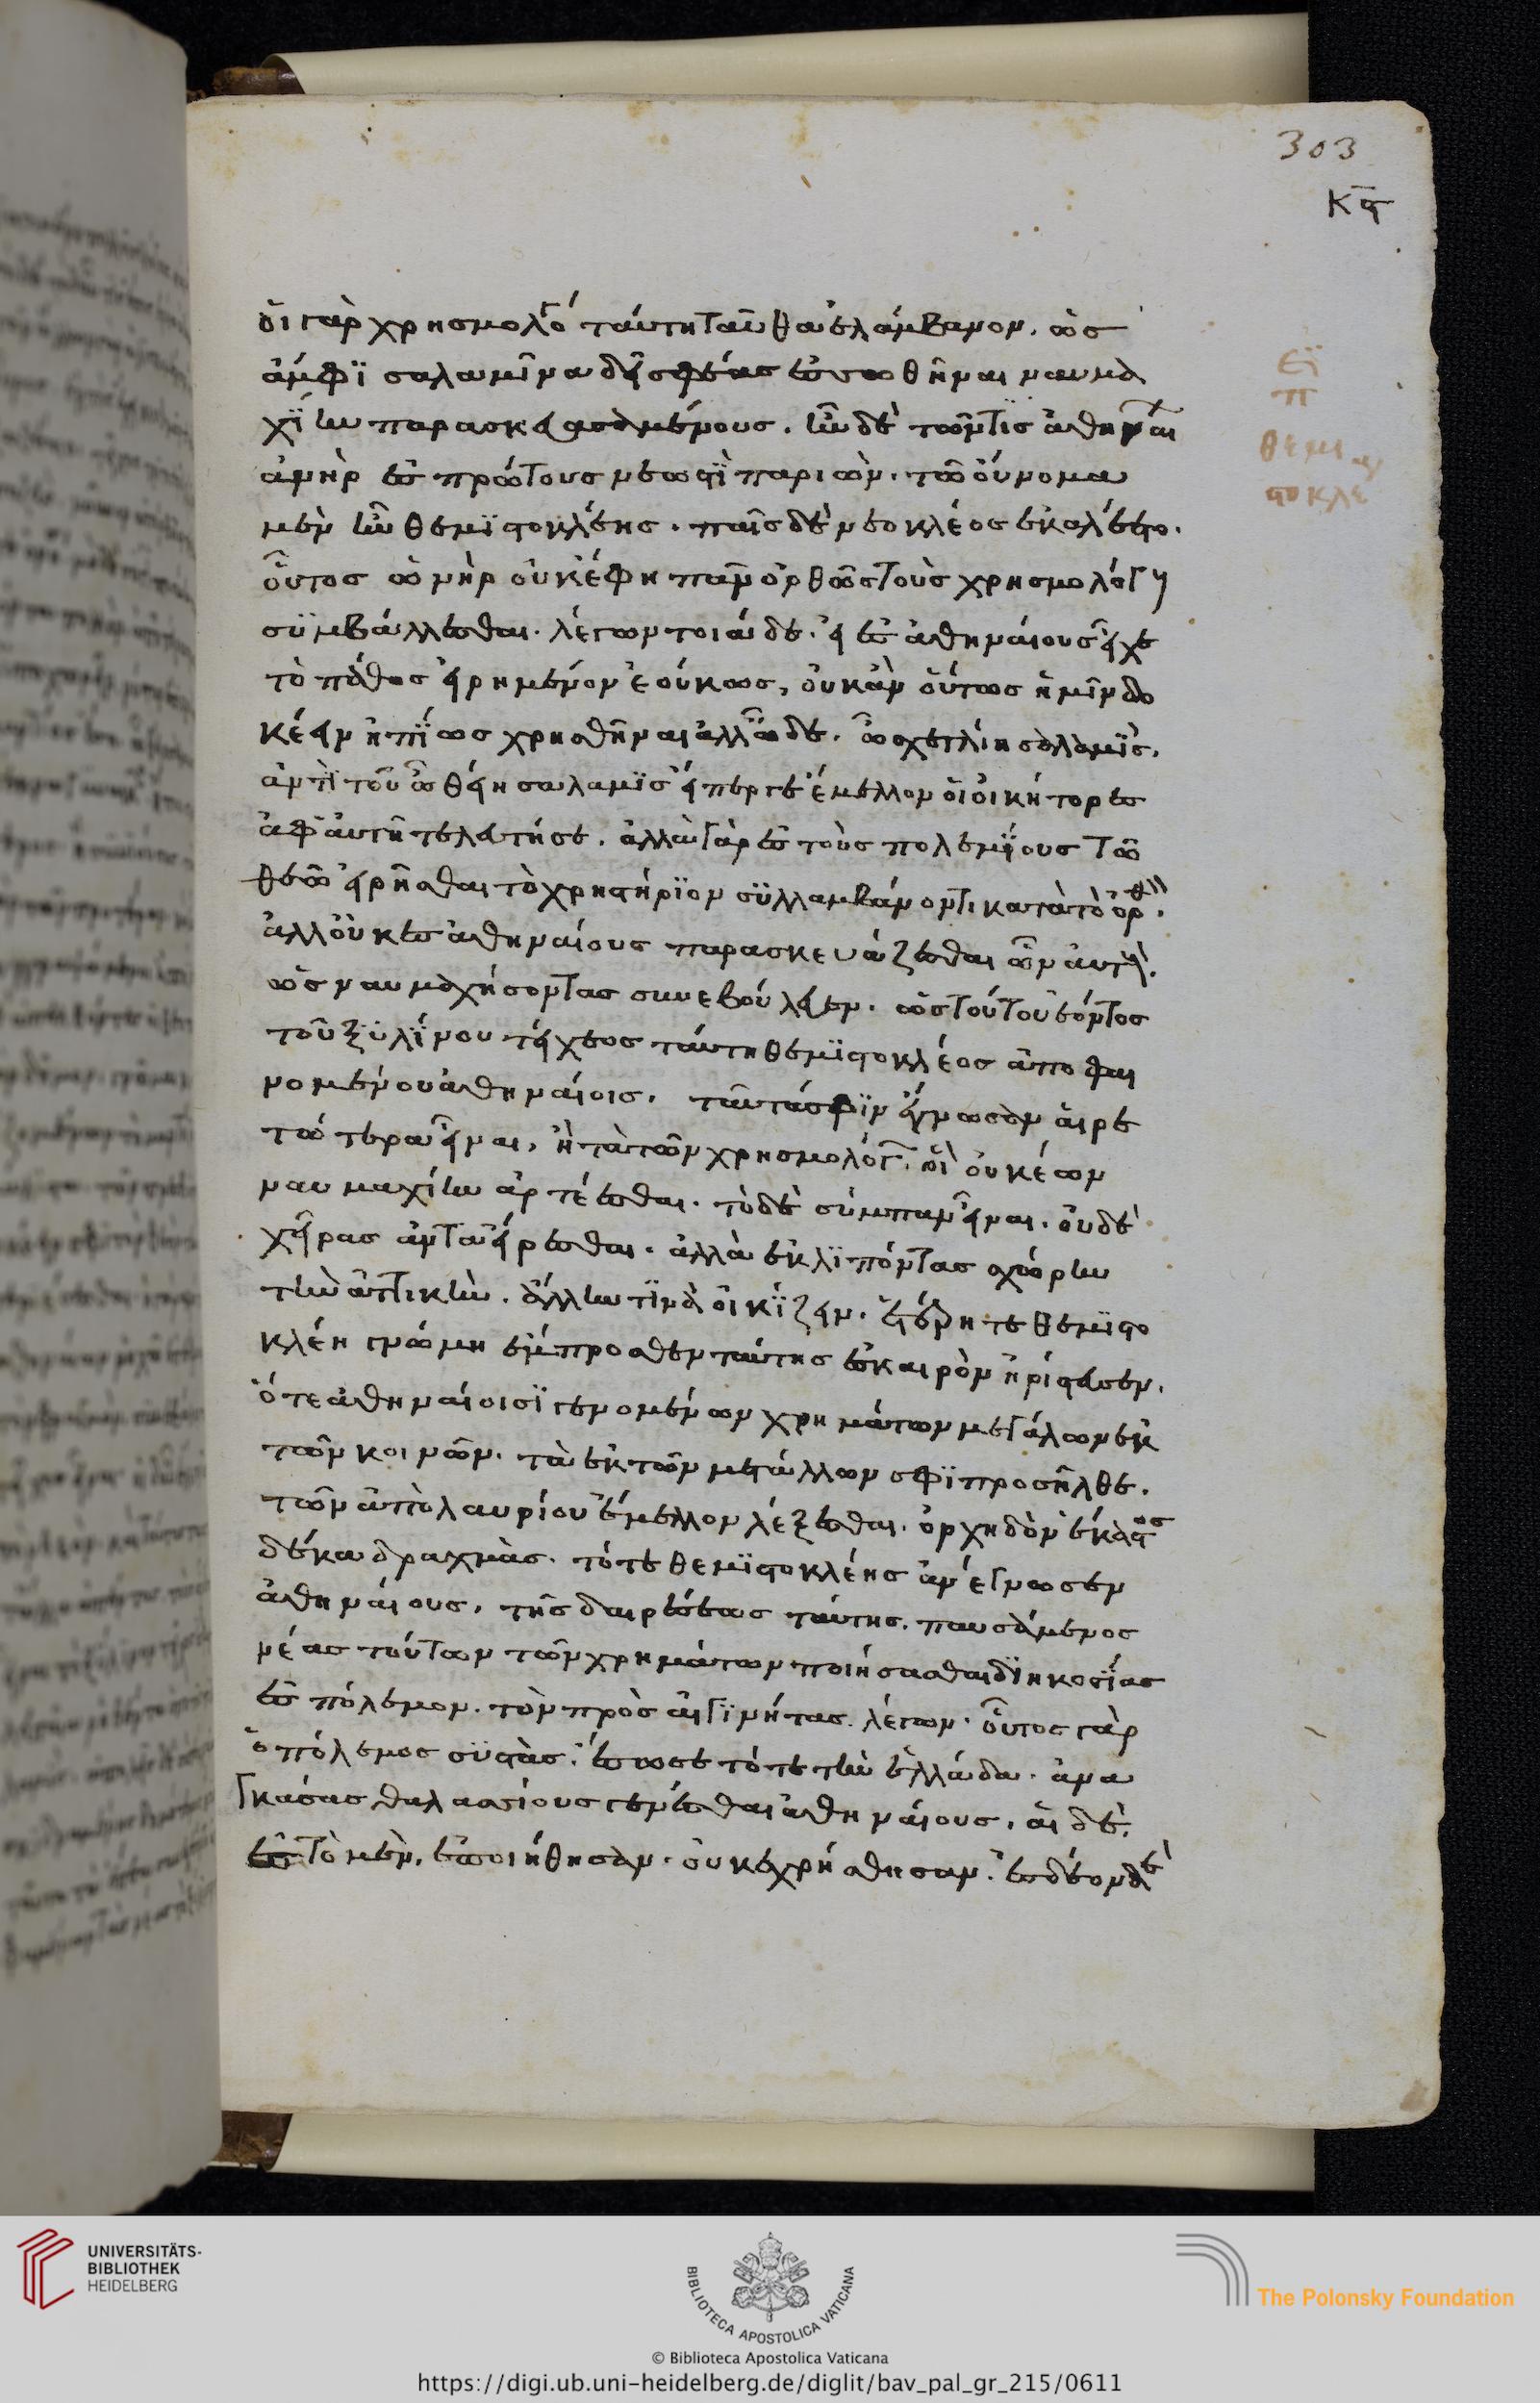 303
κϛ
οἱ γὰρ χρησμολόγοι ταύτηι ταῦτα ἐλάμβανον. ὡς
ἀμφὶ σαλαμῖνα δεῖ σφέας ἑσσωθῆναι ναυμα
χίην παρασκευασαμένους. ἦν δὲ τῶν τις ἀθηναίων
ἀνὴρ ἐς πρώτους νεωστὶ παριών. τῶ οὔνομα
μὲν ἦν θεμιστοκλέης. παῖς δὲ νεοκλέος ἐκαλέετο.
οὗτος ὡνὴρ οὐκ ἔφη πᾶν ὀρθῶς τοὺς χρησμολόγους
συμβάλλεσθαι. λέγων τοιάδε. εἰ ἐς ἀθηναίους εἶχε
τὸ πάθος εἰρημένον ἐούκως, οὐκ ἂν οὕτως ἡμῖν δο
κέειν ἠπίως χρησθῆναι ἀλλ' ὧδε. ὦ σχετλίη σαλαμὶς.
ἀντὶ τοῦ ὦ θείη σαλαμὶς εἴπερ γε ἔμελλον οἱ οἰκήτορες
ἀφ' αὐτῆ τελευτήσε. ἀλλὰ γὰρ ἐς τοὺς πολεμίους τῶ
θεῶ εἰρῆσθαι τὸ χρηστήριον συλλαμβάνοντι κατὰ τὸ ὀρθὸν.
ἀλλ' οὐκ ἐς ἀθηναίους παρασκευάζεσθαι ὦν αὐτοὺς.
ὡς ναυμαχήσοντας συνεβούλευεν. ὡς τούτου ἐόντος
τοῦ ξυλίνου τείχεος ταύτη θεμιστοκλέος ἀποφαι
νομένου ἀθηναίοις. ταῦτά σφιν ἔγνωσαν αἱρε
τώτερα εἶναι, ἢ τὰ τῶν χρησμολόγων. οἳ οὐκ ἔων
ναυμαχίην ἀρτέεσθαι. τὸ δὲ σύμπαν εἶναι. οὐδὲ
χεῖρας ἀνταείρεσθαι. ἀλλὰ ἐκλιπόντας χώρην
τὴν ἀττικὴν. ἄλλην τινὰ οἰκίζειν. ἑτέρη τε θεμιστο
κλέη γνώμη ἔμπροσθεν ταύτης ἐς καιρὸν ἠρίστευσεν.
ὅτε ἀθηναίοισι γενομένων χρημάτων μεγάλων ἐκ
τῶν κοινῶν. τὰ ἐκ τῶν μετάλλων σφι προσῆλθε.
τῶν ἀπὸ λαυρίου ἔμελλον λέξεσθαι. ὀρχηδὸν ἕκαστος
δέκα δραχμὰς. τότε θεμιστοκλέης ἀνέγνωσεν
ἀθηναίους, τῆς διαιρέσεως ταύτης. παυσάμενος
νέας τούτων τῶν χρημάτων ποιήσασθαι διηκοσίας
ἐς πόλεμον. τὸν πρὸς αἰγινήτας λέγων. οὗτος γὰρ
ὁ πόλεμος συστὰς. ἔσωσε τότε τὴν ἑλλάδα. ἀνα
γκάσας θαλασσίους γενέσθαι ἀθηναίους, αἱ δὲ,
ἐς τὸ μὲν, ἐποιήθησαν. οὐκ ἐχρήσθησαν. ἐς δέον δὲ
θεμι
στοκλε
UNIVERSITÄTS-
BIBLIOTHEK
HEIDELBERG
BIBLIOTECA APOSTOLICA VATICANA
The Polonsky Foundation
© Biblioteca Apostolica Vaticana
https://digi.ub.uni-heidelberg.de/diglit/bav_pal_gr_215/0611